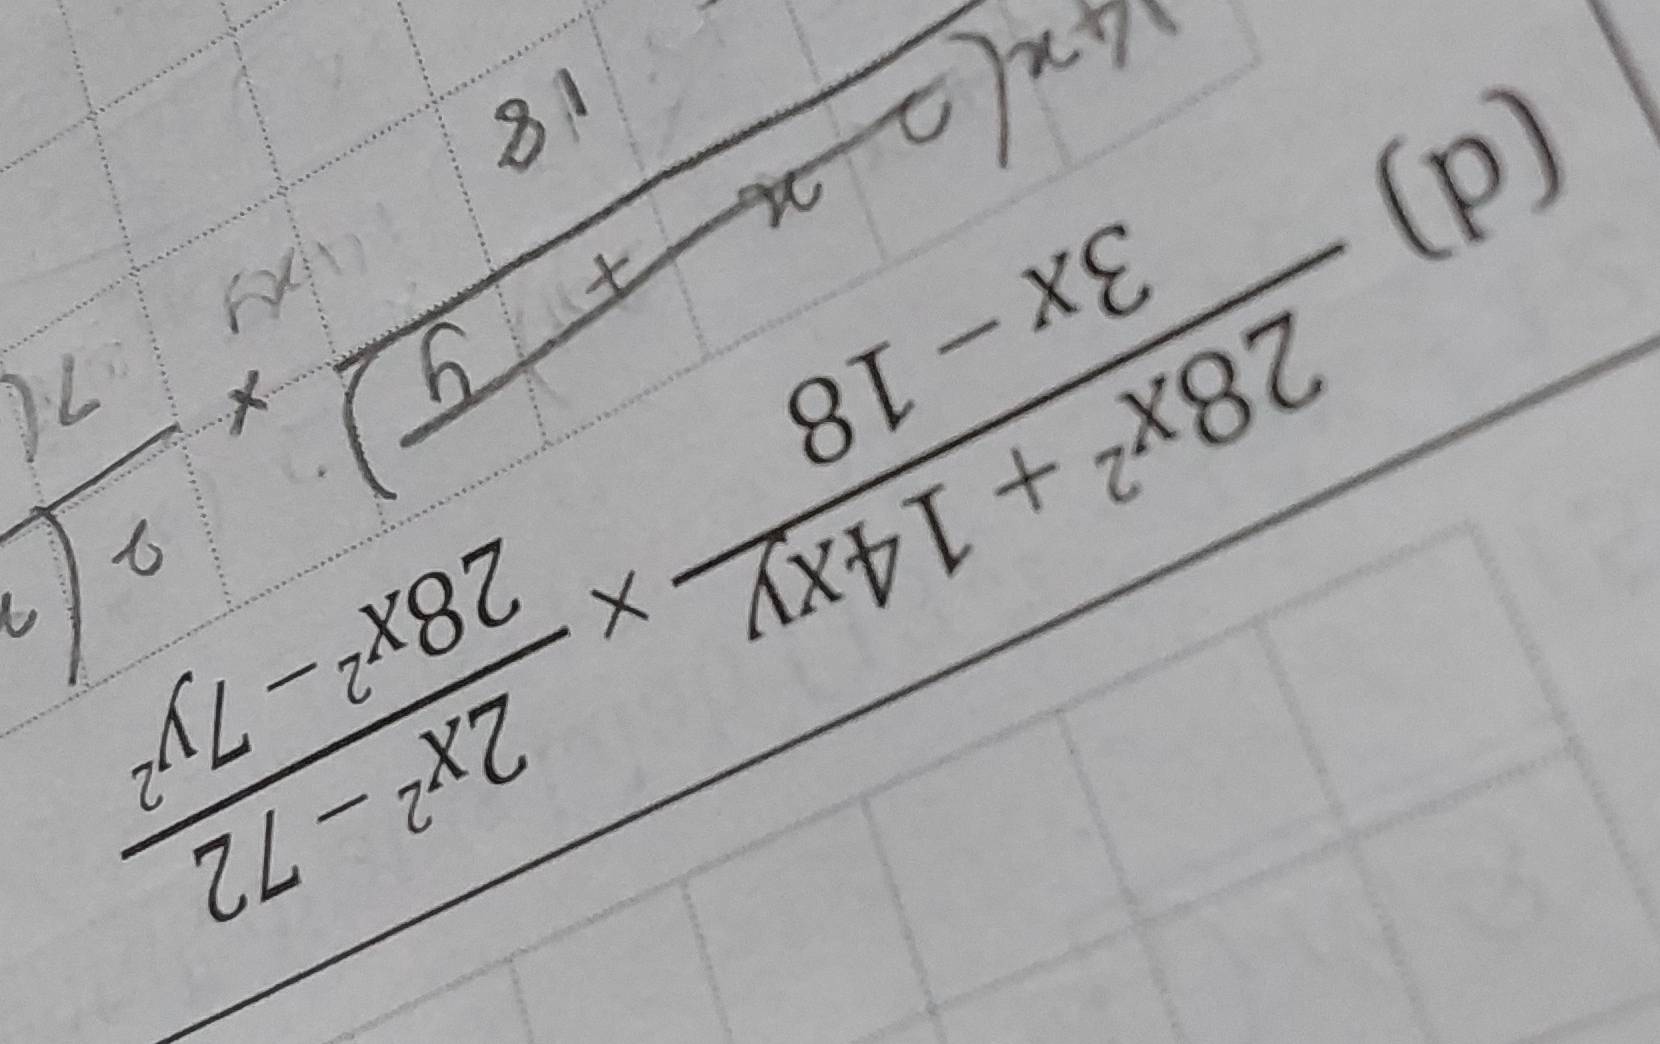 (d) \frac{28x² + 14xy}{3x − 18} × \frac{2x² − 72}{28x² − 7y²}
14x(2x + y) × 2(
18 7(